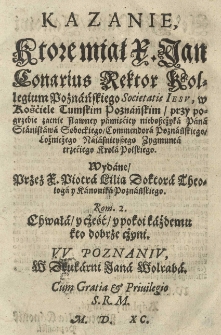 KAZANIE,
Ktore miał X. Jan
Conarius Rektor Kol-
legium Poznáńſkiego Societatis IESV, w
Kośćiele Tumſkim Poznáńſkim / przy po-
grzebie zacnie ſławney pámięćiy niebożcżyká Páná
Stániſłáwá Sobockiego / Commendorá Poznáńſkiego /
Łożnicżego Náiáśnieyſzego Zygmuntá
trzećiego Krolá Polſkiego.
Wydáne /
Przez X. Piotrá Liliá Doktorá Theo-
logá y Kánoniká Poznáńſkiego.
Rom. 2.
Chwałá / y cżeść / y pokoi káżdemu
kto dobrze cżyni.
VV POZNANIV,
W Drukárni Janá Wolrabá.
Cum Gratia & Priuilegio
S. R. M.
M. D. XC.